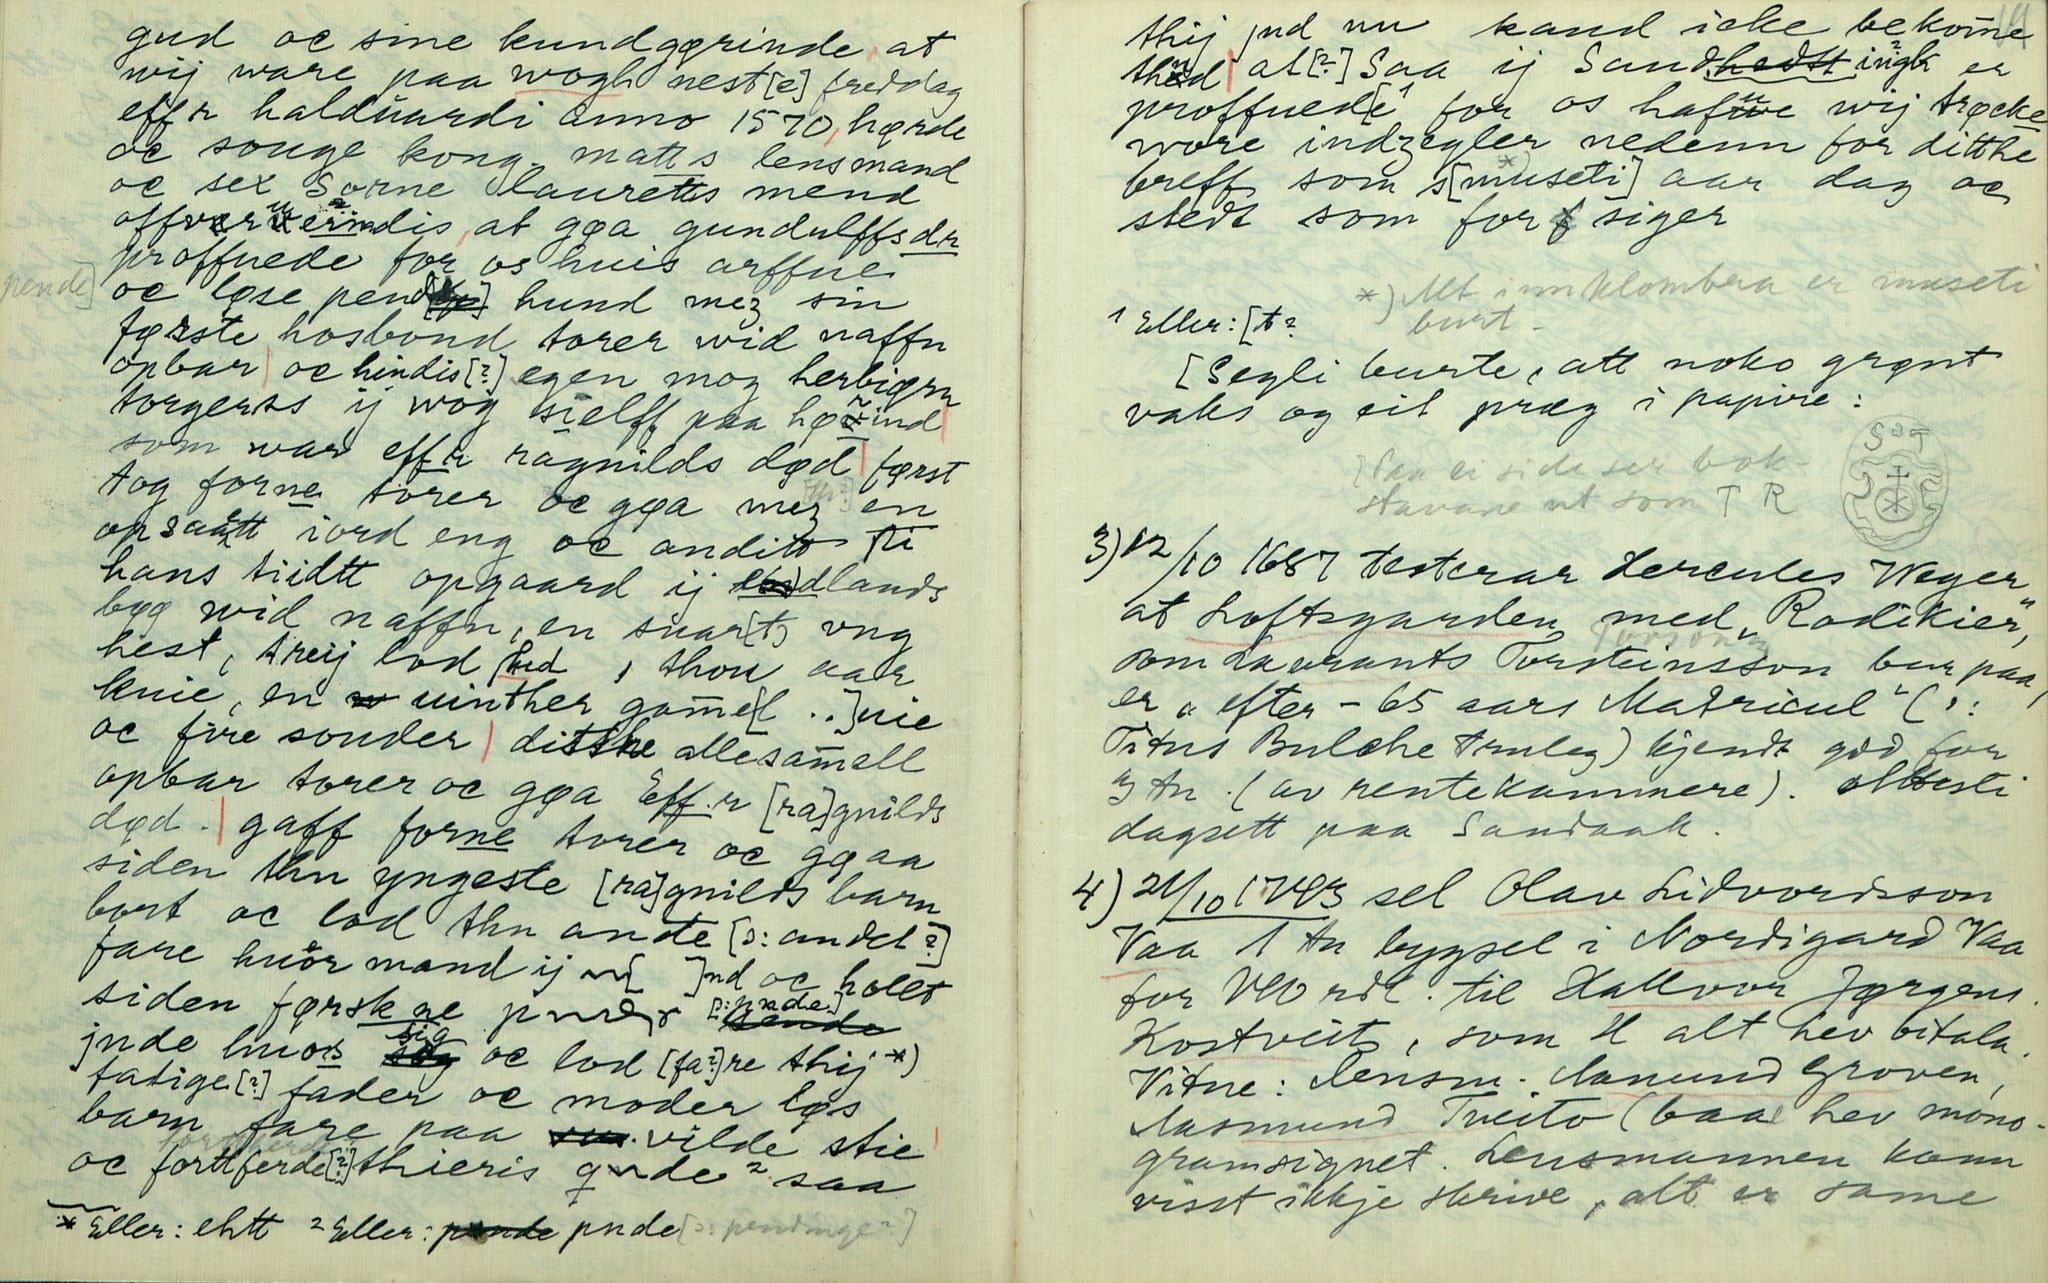 gud oc sine kundggørinde, at
wij ware paa wogh nest[e] fredag
effr haldùardi anno 1570, hørde
oc souge kong. matts lensmand
oc sex Sorne laurettis mend
at gøa gundulffsdr
proffuede for os huis arffue
pende]
oc løse pend hund mez sin
første hosbond torer wid naffn
opbar oc hindis[?] egen mog herbiørn
torgerss ij wog sielff paa
som war effr ragnilds død først
tog forne torer oc gøa mez en
[th?]
opsaatt iord eng oc andit ti
hans tiidtt opgaard ij dlands
bøø wid naffn, en suar[t] vng
hest, treij lod , thou aar
knie, en uinther gom̄e[l ..]nie
oc fire sonder ditthe allesam̄ell
opbar torer oc gøa Effr [ra]gnilds
død. gaff forne torer oc gøaa
siden thn yngeste [ra]gnilds barn
bort oc lod thn ande [ɔ: andet?]
fare huor mand ij [ ]nd oc hollt
siden førskne
jnde huos sig oc lod [fa?]re thij *)
fatige[?] fader oc moder løs
barn fare paa vilde stie
oc forttferde[?] thieris de ² saa
* Eller: ehtt ² Eller: pnde [ɔ: pendinge?]
14
thij jnd nu kand icke bekom̄e
at[?] Saa ij Sand ingh er
proffuede[¹ for os hafue wij trøcke
wore indzegler nedenn for ditthe
breff som s[museti] aar dag oc
stedt som for siger
*) Alt inn klombra er museti
burt.
¹ Eller: [t?
[Segli burte, att noko grønt
vaks og eit præg i papire:
S T
[Paa ei side ser bok-
stavane ut som T R
3) 12/10 1687 testerar Hercules Weyer"
at Loftsgarden med „Rodikier,"
som Laurants Torsteinsson bur paa,
er „efter - 65 aars Matricul" (ɔ:
Titus Bulche truleg) kjendt god for
3 tn. (av rentekammere). Attesti
dagsett paa Sandaak.
4) 21/10 1743 sel Olav Lidvordsson
Vaa 1 tn bygsel i Nordigard Vaa
for rdl. til Hallvor Jørgens.
Kostveit, som H alt hev bitala.
Vitne: Lensm. Aamund Groven,
Aasmund Tveito (baa hev mono-
gramsignet. Lensmannen kann
visst ikkje skrive, alt er same